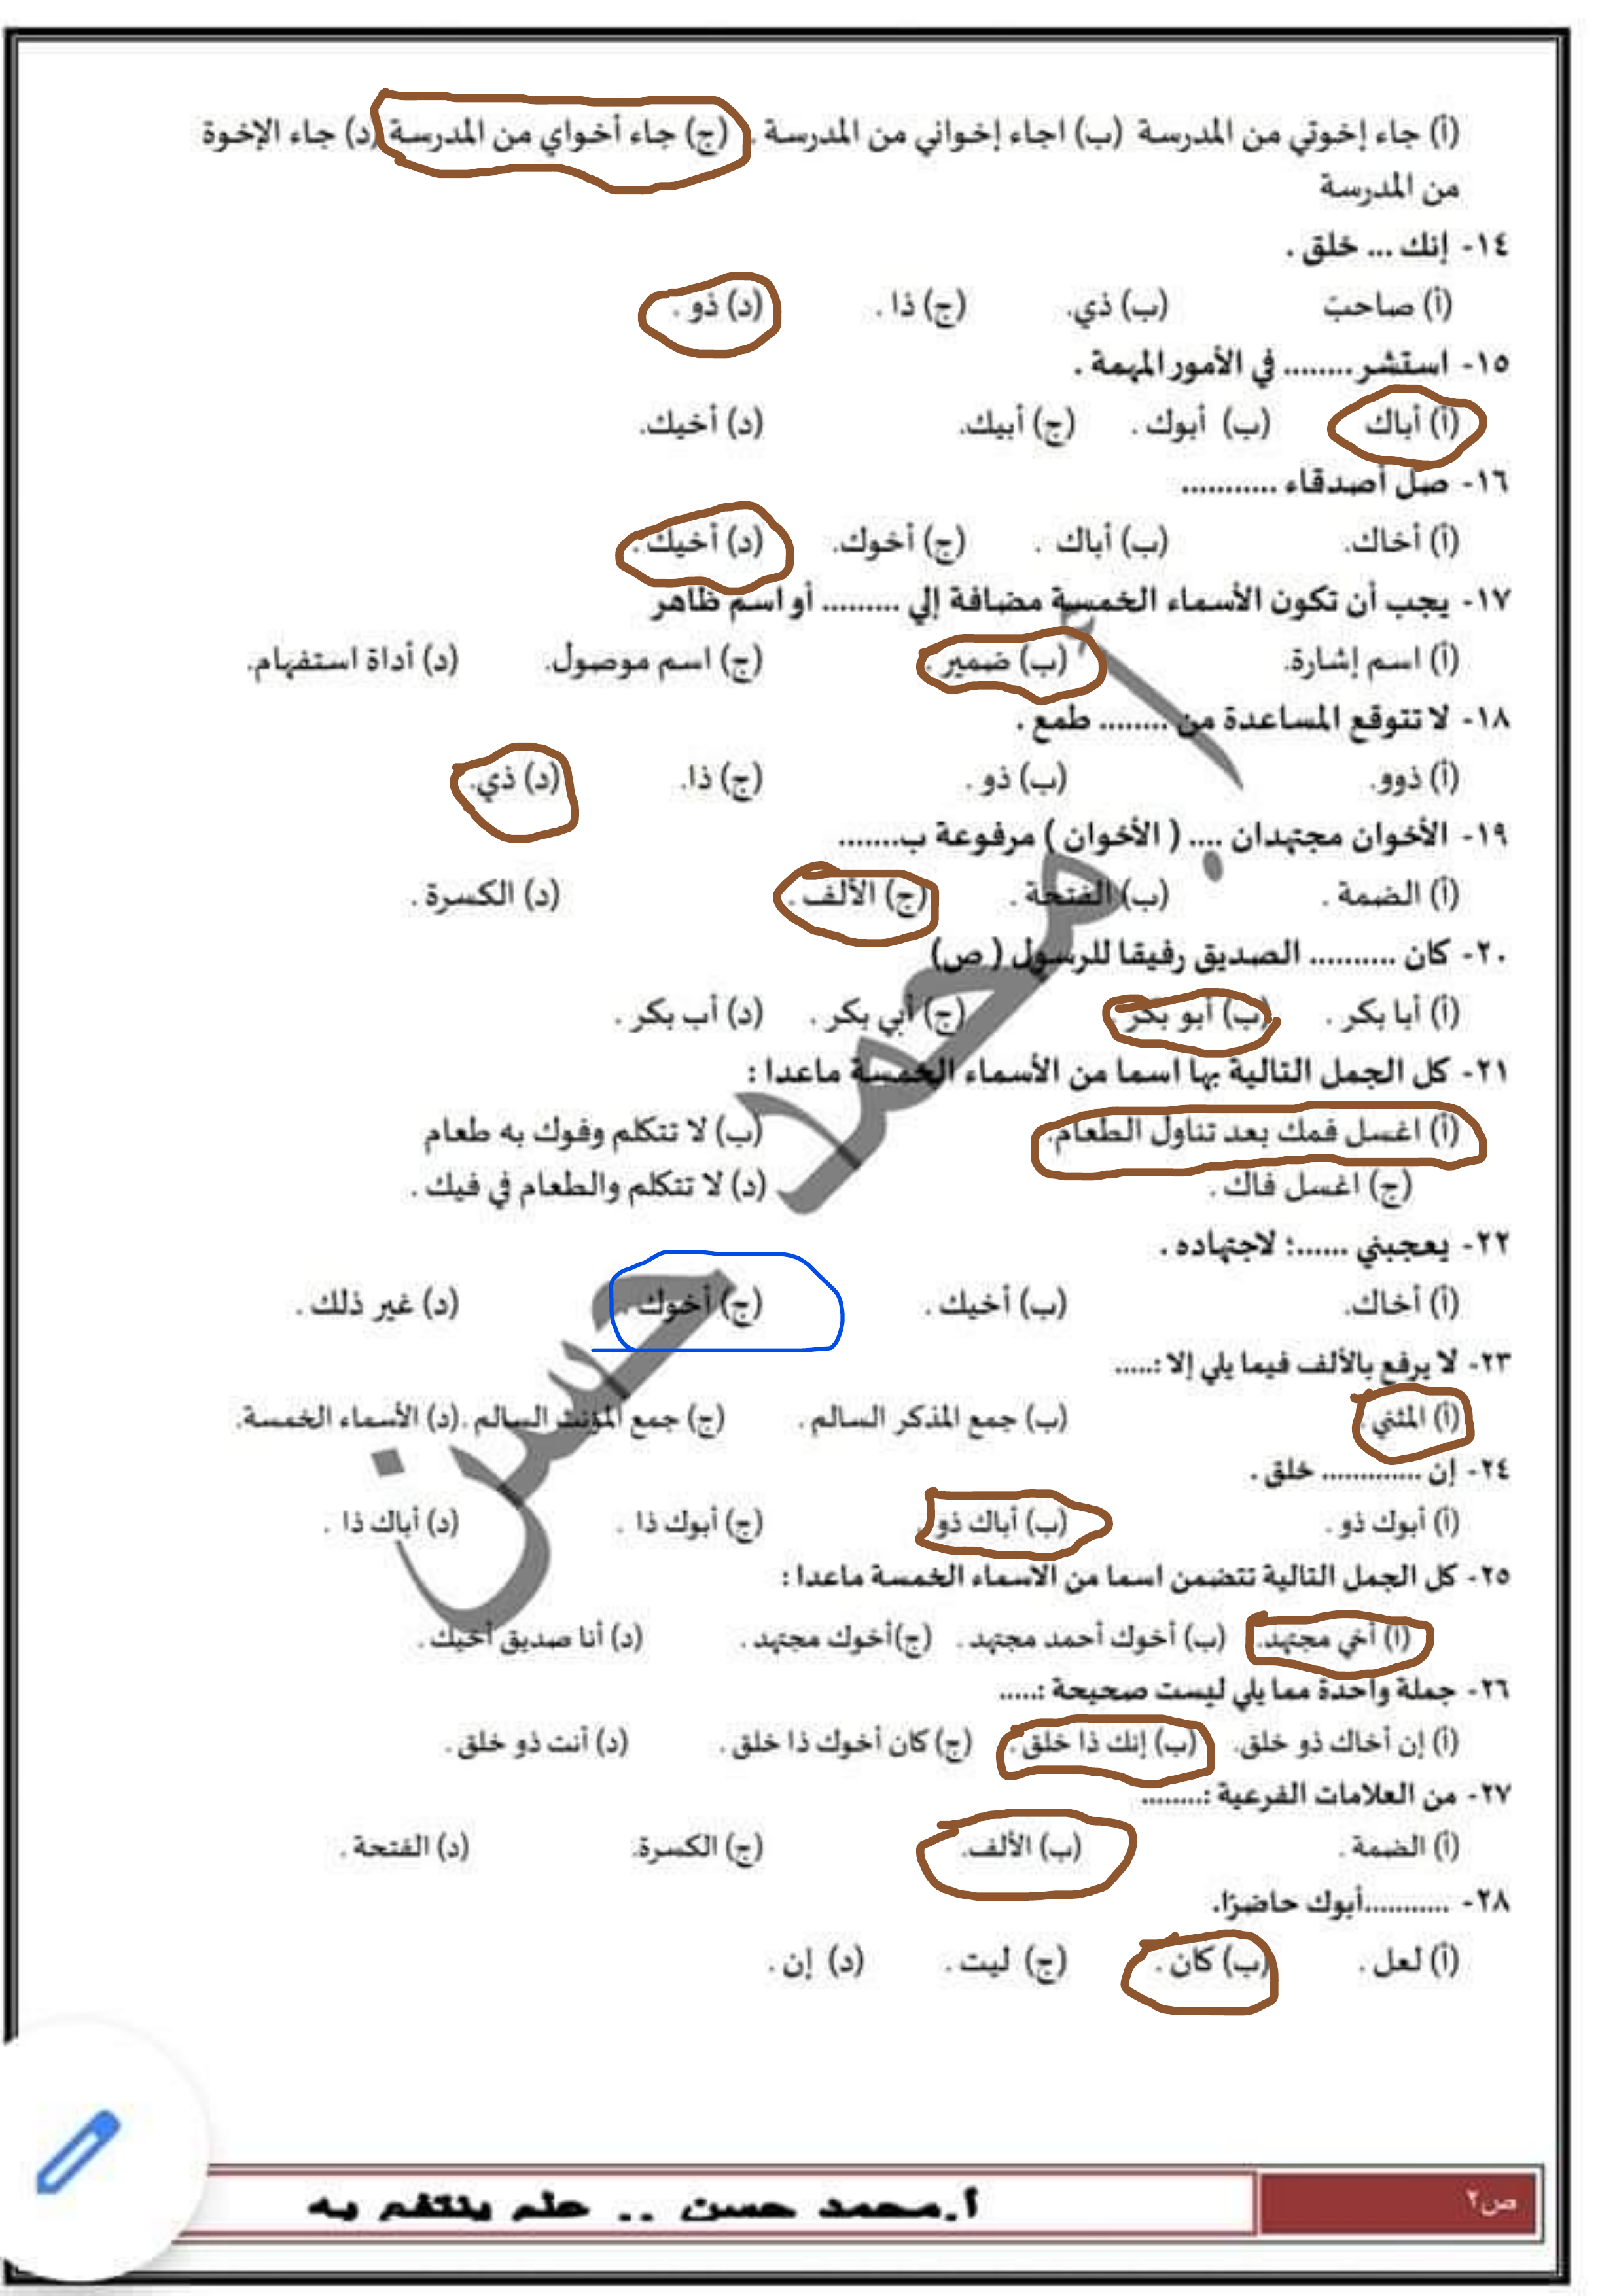 (أ) جاء إخوتي من المدرسة (ب) اجاء إخواني من المدرسة . (ج) جاء أخواي من المدرسة (د) جاء الإخوة
من المدرسة
١٤- إنك ... خلق .
(أ) صاحبَ (ب) ذي. (ج) ذا . (د) ذو .
١٥- استشر........ في الأمور المهمة .
(أ) أباك (ب) أبوك . (ج) أبيك. (د) أخيك.
١٦- صل أصدقاء ...........
(أ) أخاك. (ب) أباك . (ج) أخوك. (د) أخيك .
١٧- يجب أن تكون الأسماء الخمسة مضافة إلي ......... أو اسم ظاهر
(أ) اسم إشارة. (ب) ضمير . (ج) اسم موصول. (د) أداة استفهام.
١٨- لا تتوقع المساعدة من ........ طمع .
(أ) ذوو. (ب) ذو . (ج) ذا. (د) ذي.
١٩- الأخوان مجتهدان .... ( الأخوان ) مرفوعة ب.......
(أ) الضمة . (ب) الفتحة . (ج) الألف . (د) الكسرة .
٢٠- كان .......... الصديق رفيقا للرسول ( ص)
(أ) أبا بكر . (ب) أبو بكر . (ج) أبي بكر . (د) أب بكر .
٢١- كل الجمل التالية بها اسما من الأسماء الخمسة ماعدا :
(أ) اغسل فمك بعد تناول الطعام. (ب) لا تتكلم وفوك به طعام
(ج) اغسل فاك . (د) لا تتكلم والطعام في فيك .
٢٢- يعجبني ......؛ لاجتهاده .
(أ) أخاك. (ب) أخيك . (ج) أخوك . (د) غير ذلك .
٢٣- لا يرفع بالألف فيما يلي إلا :.....
(أ) المثني . (ب) جمع المذكر السالم . (ج) جمع المؤنث السالم . (د) الأسماء الخمسة.
٢٤- إن ............. خلق .
(أ) أبوك ذو . (ب) أباك ذو . (ج) أبوك ذا . (د) أباك ذا .
٢٥- كل الجمل التالية تتضمن اسما من الاسماء الخمسة ماعدا :
(ا) أخي مجتهد. (ب) أخوك أحمد مجتهد . (ج)أخوك مجتهد . (د) أنا صديق أخيك .
٢٦- جملة واحدة مما يلي ليست صحيحة :.....
(أ) إن أخاك ذو خلق. (ب) إنك ذا خلق . (ج) كان أخوك ذا خلق . (د) أنت ذو خلق .
٢٧- من العلامات الفرعية :........
(أ) الضمة . (ب) الألف. (ج) الكسرة. (د) الفتحة .
٢٨- ...........أبوك حاضرًا.
(أ) لعل . (ب) كان . (ج) ليت . (د) إن .
أ. محمد حسن
ص٢
أ.محمد حسن .. علم ينتفع به